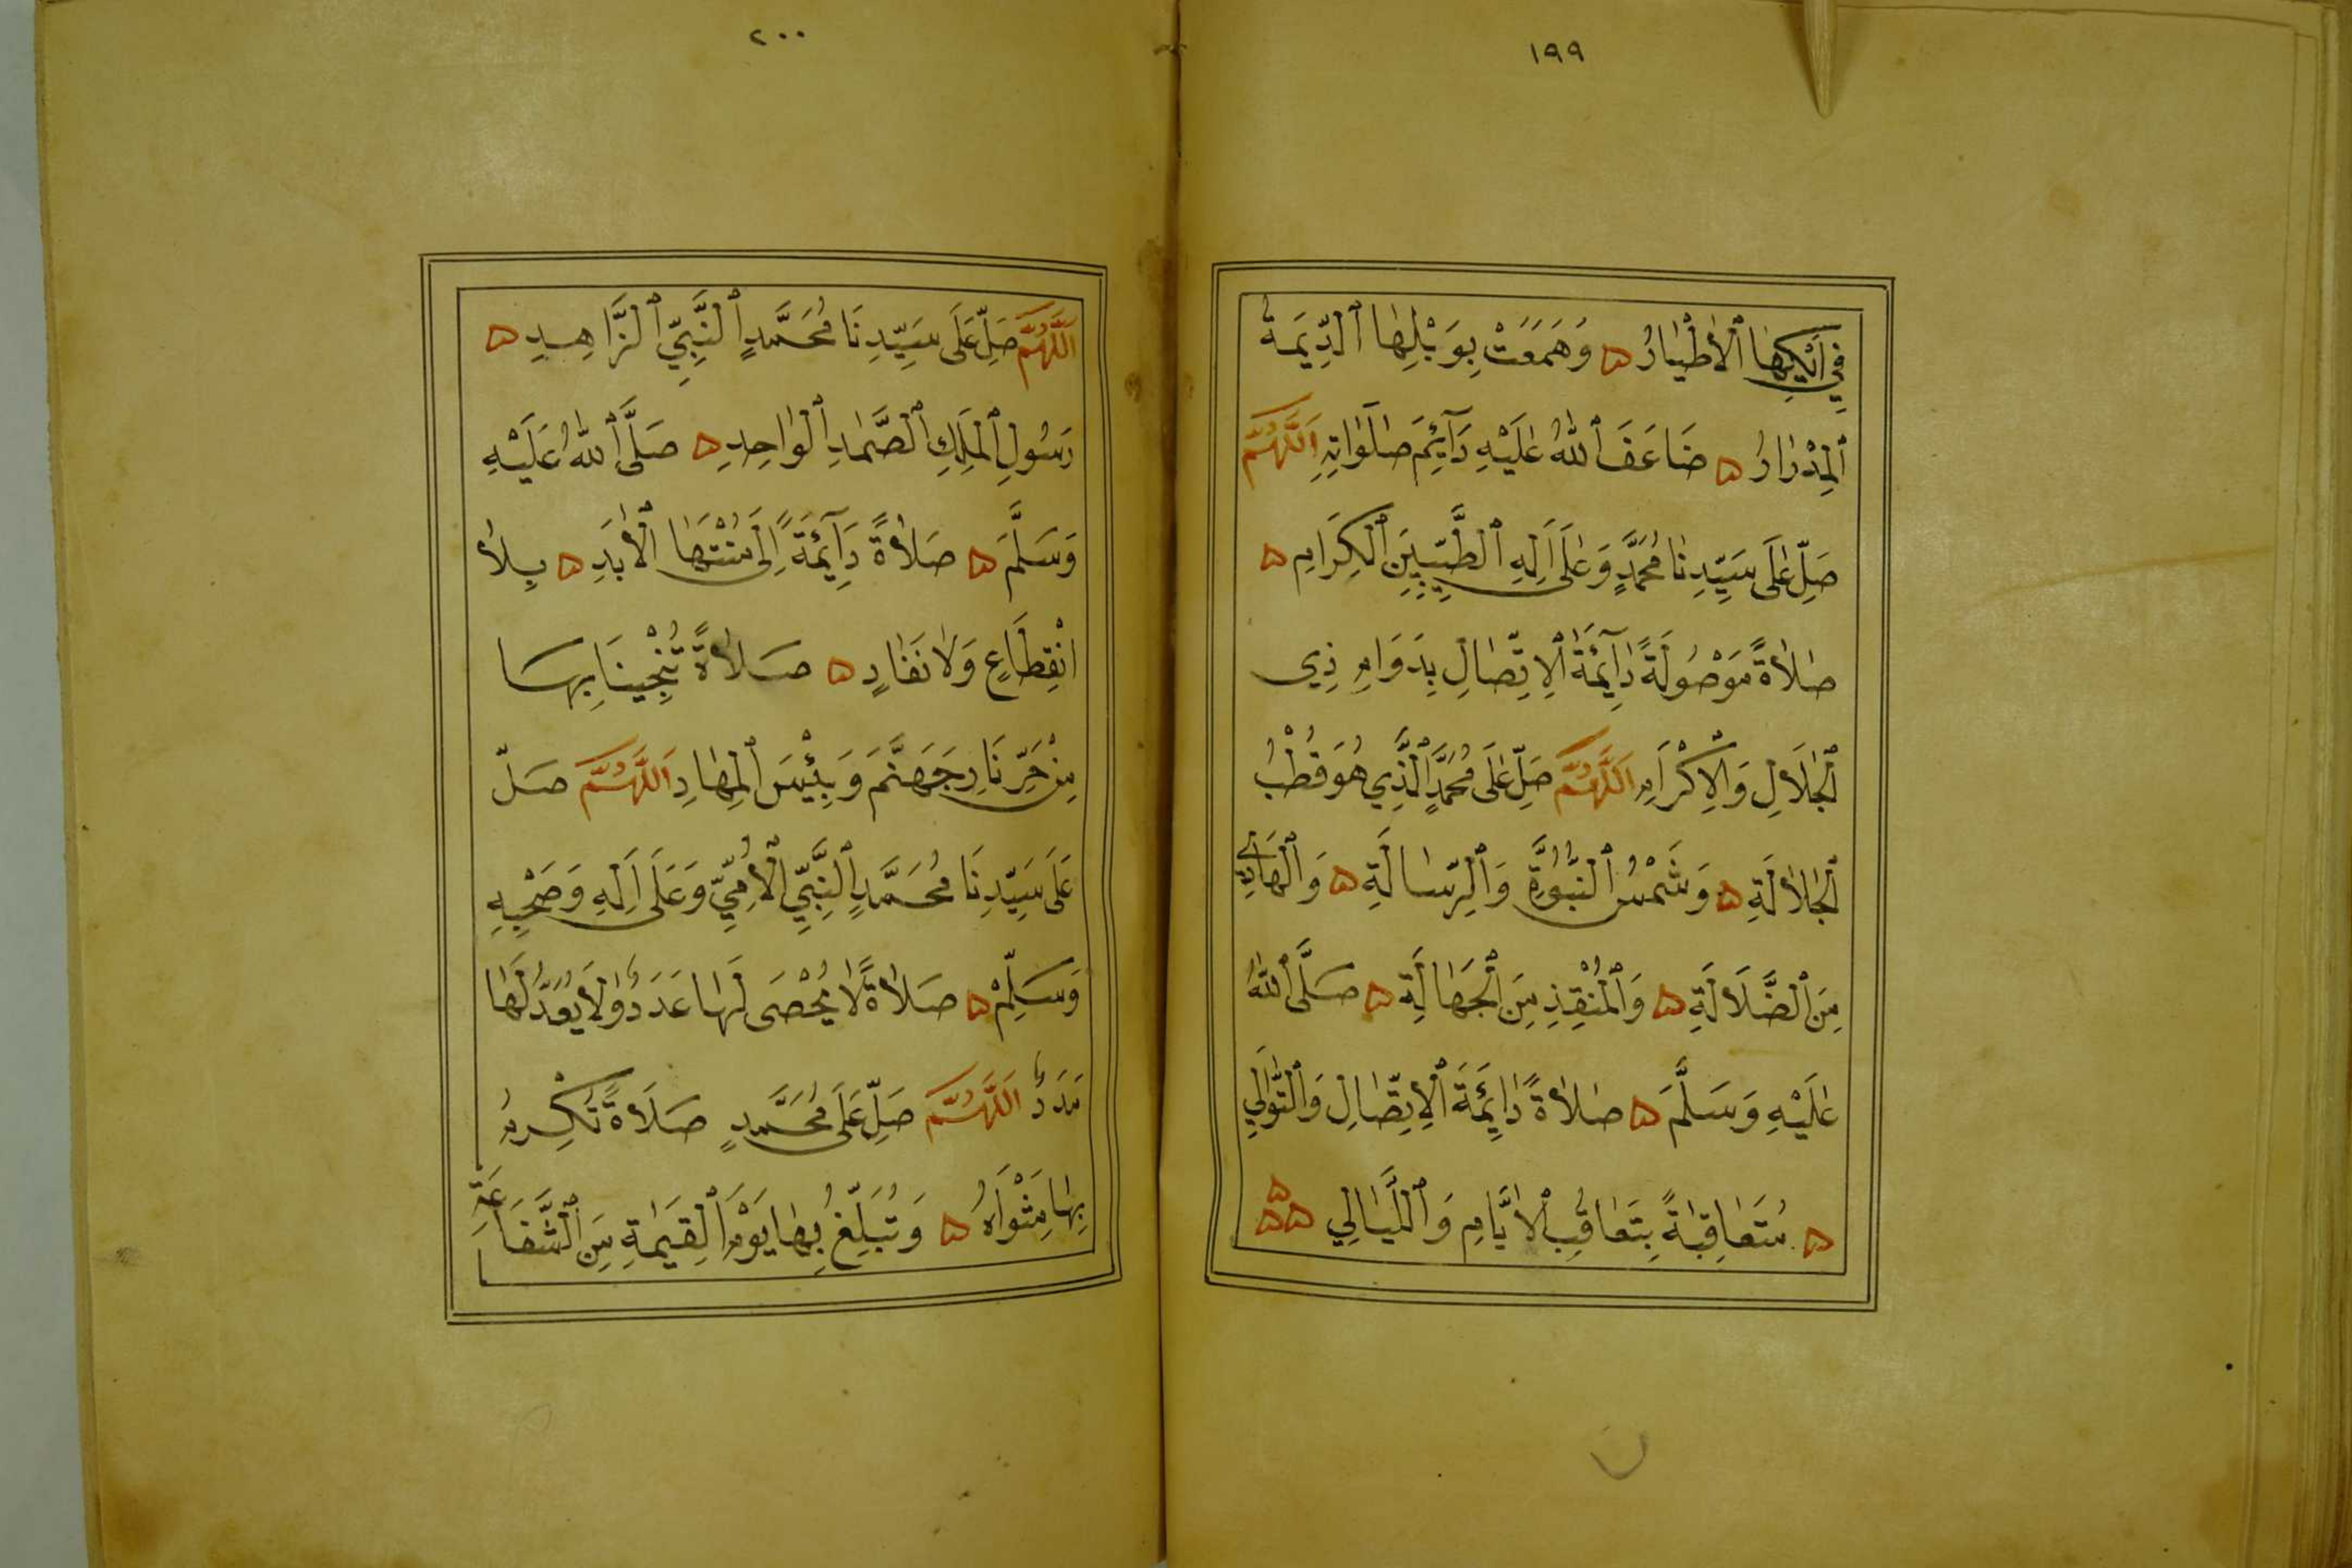 ١٩٩
فِي اَيْكِهَا ٱلْأَطْيَارُ ۞ وَهَمَعَتْ بِوَبْلِهَا ٱلدِّيَمَةُ
ٱلْمِدْرَارُ ۞ ضَاعَفَ ٱللّٰهُ عَلَيْهِ دَآئِمَ صَلَوَاتِهِ اَللَّهُمَّ
صَلِّ عَلَى سَيِّدِنَا مُحَمَّدٍ وَعَلَى اَلِهِ ٱلطَّيِّبِينَ ٱلْكِرَامِ ۞
صَلَاةً مَوْصُولَةً دَآئِمَةَ ٱلْاِتِّصَالِ بِدَوَامِ ذِي
ٱلْجَلَالِ وَالْاِكْرَامِ اَللَّهُمَّ صَلِّ عَلَى مُحَمَّدٍ ٱلَّذِي هُوَ قُطْبُ
ٱلْجَلَالَةِ ۞ وَشَمْسُ ٱلنُّبُوَّةِ وَٱلرِّسَالَةِ ۞ وَٱلْهَادِي
مِنَ ٱلضَّلَالَةِ ۞ وَٱلْمُنْقِذِ مِنَ ٱلْجَهَالَةِ ۞ صَلَّى ٱللّٰهُ
عَلَيْهِ وَسَلَّمَ ۞ صَلَاةً دَائِمَةَ ٱلْاِتِّصَالِ وَٱلتَّوَالِي
۞ مُتَعَاقِبَةً بِتَعَاقُبِ ٱلْاَيَّامِ وَٱللَّيَالِي ۞۞۞
٢٠٠
اَللَّهُمَّ صَلِّ عَلَى سَيِّدِنَا مُحَمَّدٍ ٱلنَّبِيِّ ٱلزَّاهِدِ ۞
رَسُولِ ٱلْمَلِكِ ٱلصَّمَدِ ٱلْوَاحِدِ ۞ صَلَّى ٱللّٰهُ عَلَيْهِ
وَسَلَّمَ ۞ صَلَاةً دَآئِمَةً اِلَى مُنْتَهَا ٱلْأَبَدِ ۞ بِلَا
انْقِطَاعٍ وَلَا نَفَادٍ ۞ صَلَاةً تُنْجِينَا بِهَا
مِنْ حَرِّ نَارِ جَهَنَّمَ وَبِئْسَ ٱلْمِهَادِ اَللَّهُمَّ صَلِّ
عَلَى سَيِّدِنَا مُحَمَّدٍ ٱلنَّبِيِّ ٱلْأُمِّيِّ وَعَلَى اَلِهِ وَصَحْبِهِ
وَسَلِّمْ ۞ صَلَاةً لَا يُحْصَى لَهَا عَدَدٌ وَلَا يُعَدُّ لَهَا
مَدَدٌ اَللَّهُمَّ صَلِّ عَلَى مُحَمَّدٍ صَلَاةً تُكْرِمُ
بِهَا مَثْوَاهُ ۞ وَتُبَلِّغُ بِهَا يَوْمَ ٱلْقِيَمَةِ مِنَ ٱلشَّفَاعَةِ